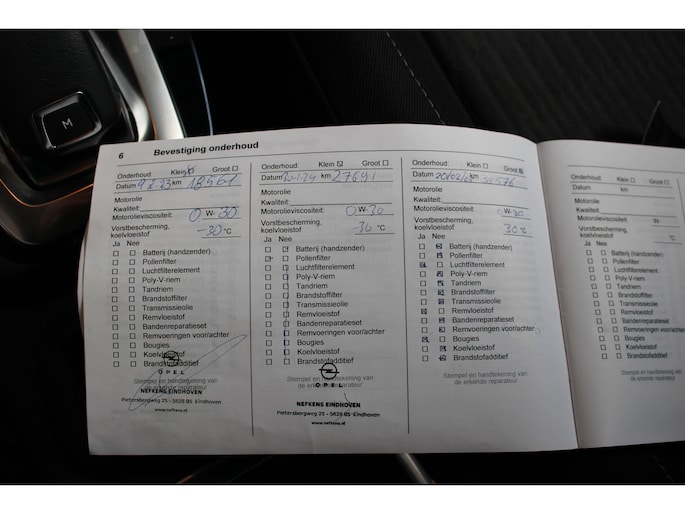 M
6 Bevestiging onderhoud
Onderhoud: Klein Groot
Datum km 18561
Motorolie
Kwaliteit:
Motorolieviscositeit: 0 W- 30
Vorstbescherming,
koelvloeistof -30 °C
Ja Nee
Batterij (handzender)
Pollenfilter
Luchtfilterelement
Poly-V-riem
Tandriem
Brandstoffilter
Transmissieolie
Remvloeistof
Bandenreparatieset
Remvoeringen voor/achter
Bougies
Koelvloeistof
Brandstofadditief
OPEL
Stempel en handtekening van
de erkende reparateur
NEFKENS EINDHOVEN
Pietersbergweg 25 - 5628 BS Eindhoven
www.nefkens.nl
Onderhoud: Klein Groot
Datum 30-1-24 km 27691
Motorolie
Kwaliteit:
Motorolieviscositeit: 0 W- 30
Vorstbescherming,
koelvloeistof -30 °C
Ja Nee
Batterij (handzender)
Pollenfilter
Luchtfilterelement
Poly-V-riem
Tandriem
Brandstoffilter
Transmissieolie
Remvloeistof
Bandenreparatieset
Remvoeringen voor/achter
Bougies
Koelvloeistof
Brandstofadditief
OPEL
Stempel en handtekening van
de erkende reparateur
NEFKENS EINDHOVEN
Pietersbergweg 25 - 5628 BS Eindhoven
www.nefkens.nl
Onderhoud: Klein Groot
Datum km
Motorolie
Kwaliteit:
Motorolieviscositeit: 0 W- 30
Vorstbescherming,
koelvloeistof 30 °C
Ja Nee
Batterij (handzender)
Pollenfilter
Luchtfilterelement
Poly-V-riem
Tandriem
Brandstoffilter
Transmissieolie
Remvloeistof
Bandenreparatieset
Remvoeringen voor/achter
Bougies
Koelvloeistof
Brandstofadditief
Stempel en handtekening van
de erkende reparateur
Onderhoud: Klein Groot
Datum km
Motorolie
Kwaliteit:
Motorolieviscositeit: W-
Vorstbescherming,
koelvloeistof °C
Ja Nee
Batterij (handzender)
Pollenfilter
Luchtfilterelement
Poly-V-riem
Tandriem
Brandstoffilter
Transmissieolie
Remvloeistof
Bandenreparatieset
Remvoeringen voor/achter
Bougies
Koelvloeistof
Brandstofadditief
Stempel en handtekening van
de erkende reparateur